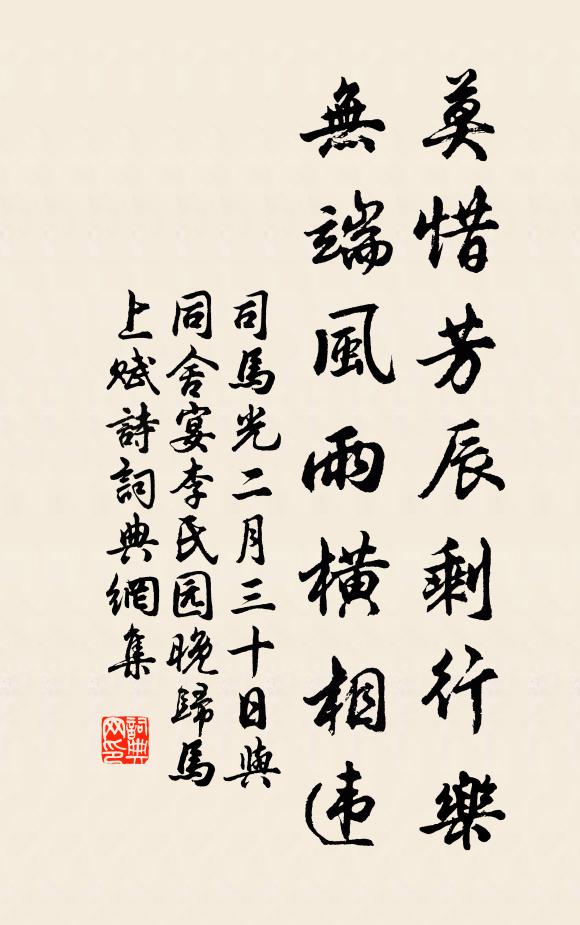 莫惜芳辰剩行樂
無端風雨橫相违
司馬光二月三十日與
同舍宴李氏园晚歸馬
上赋詩詞典網集
詞典
网印